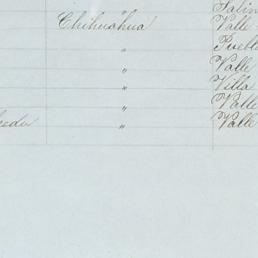 Chihuahua Valle
" Puebl
" Valle
" Villa
" Valle
" Valle